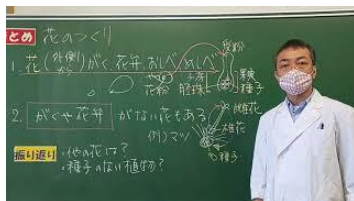 とめ 花のつくり
1. 花(外側から)がく、花弁、おしべ、めしべ
受粉
花粉 胚珠
果実
種子
2. がくや花弁がない花もある
例)マツ
雌花
雄花
種子
振り返り ・他の花は?
・種子のない植物?